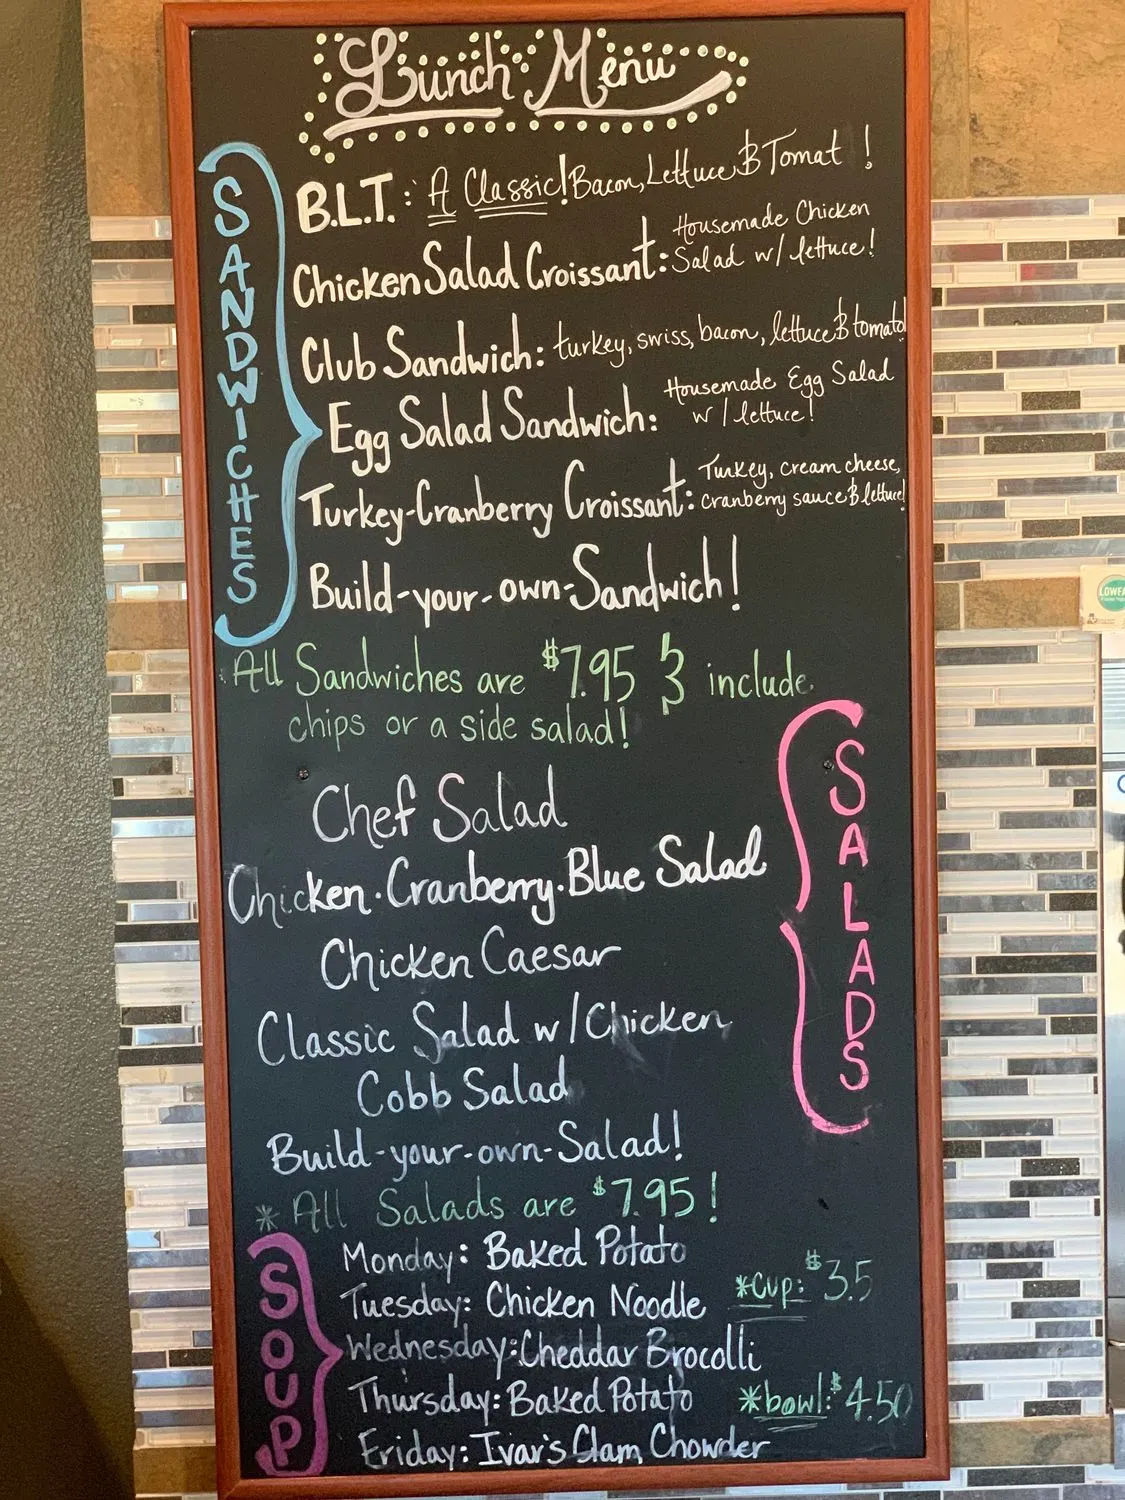 Lunch Menu
SANDWICHES
B.L.T.: A Classic! Bacon, Lettuce & Tomat !
Chicken Salad Croissant: Housemade Chicken
Salad w/ lettuce!
Club Sandwich: turkey, swiss, bacon, lettuce & tomato!
Egg Salad Sandwich: Housemade Egg Salad
w/ lettuce!
Turkey-Cranberry Croissant: Turkey, cream cheese,
cranberry sauce & lettuce!
Build-your-own-Sandwich!
All Sandwiches are $7.95 & include
chips or a side salad!
SALADS
Chef Salad
Chicken·Cranberry·Blue Salad
Chicken Caesar
Classic Salad w/Chicken
Cobb Salad
Build-your-own-Salad!
* All Salads are $7.95!
SOUP
Monday: Baked Potato
Tuesday: Chicken Noodle
*Cup: $3.5
Wednesday: Cheddar Brocolli
Thursday: Baked Potato
*bowl: $4.50
Friday: Ivar's Clam Chowder